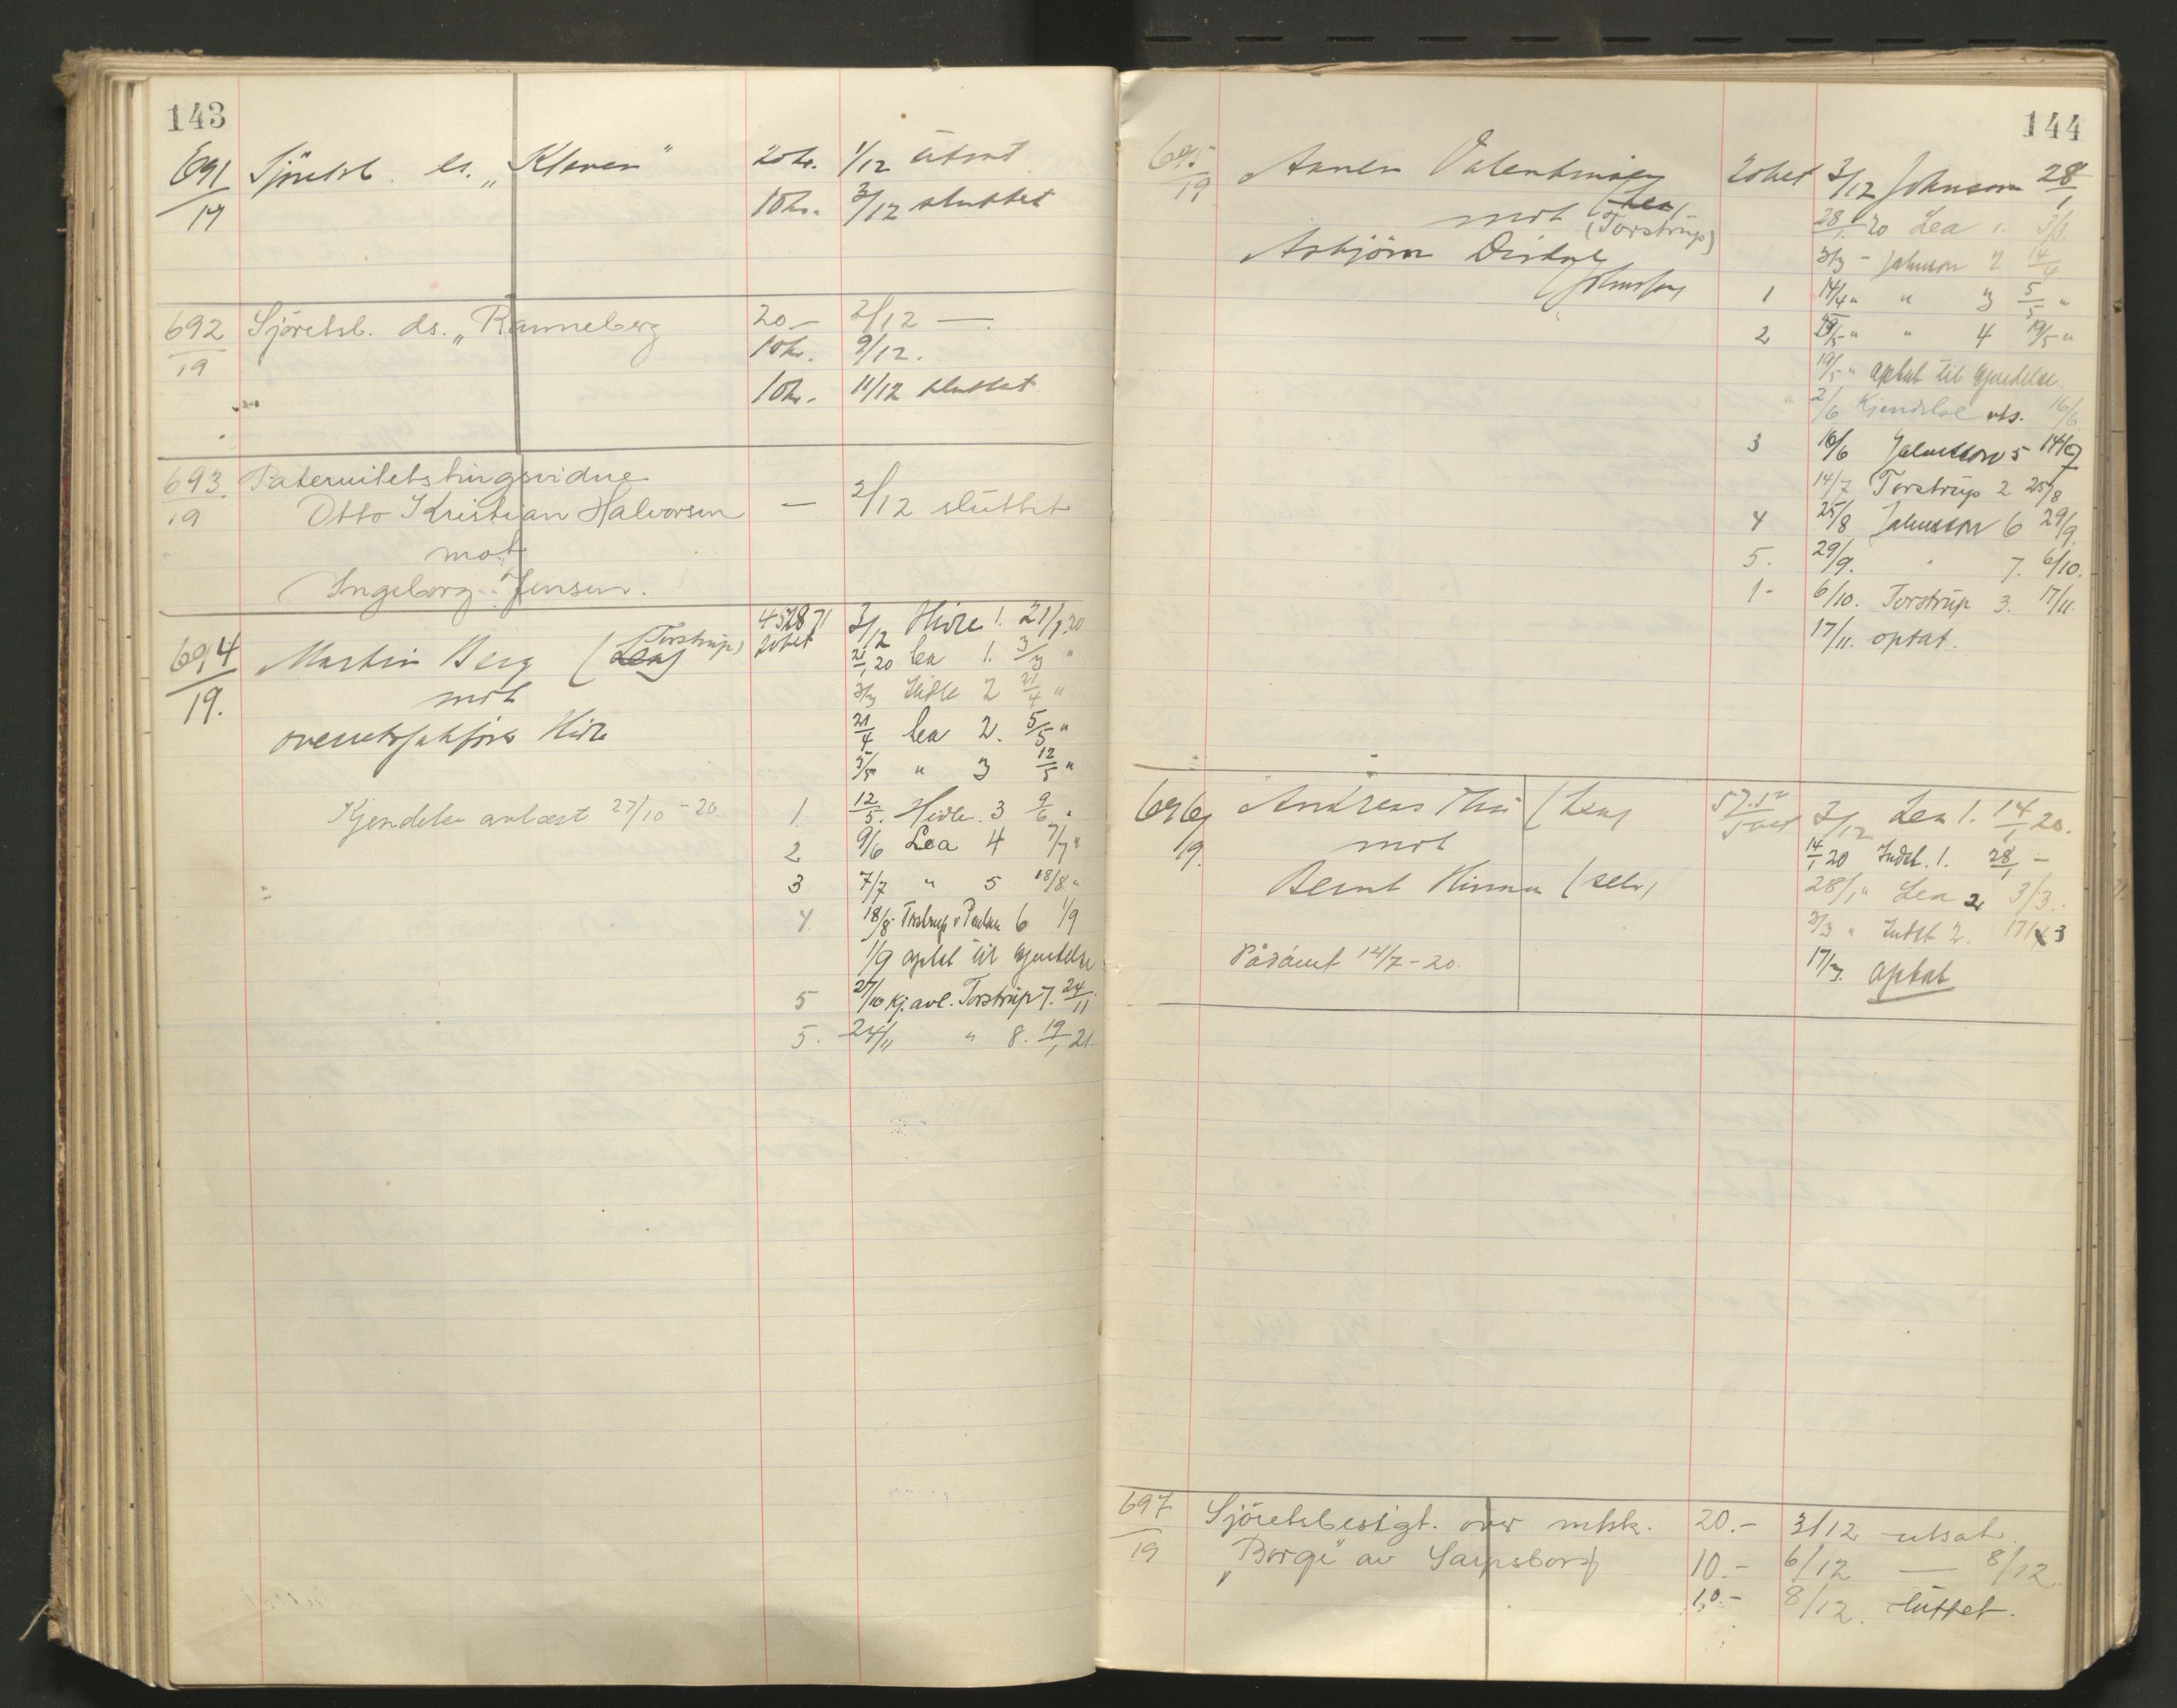 143
691/19 Sjöretsb. ds. „Klaren" 20 kr. 1/12 utsat
10 kr. 3/12 sluttet
692/19 Sjöretsb. ds. „Ranneberg 20 — 2/12 —
10 kr. 9/12.
10 kr. 11/12 sluttet
693./19 Paternitetstingsvidne
Otto Kristian Halvorsen — 2/12 sluttet
mot
Ingeborg Jensen.
694/19. Martin Berg (Lea) (Torstrup) 3/12 Hidle 1. 21/1 20
mot 21/1 20 Lea 1. 3/3 "
3/3 Hidle 2 21/4 "
overretssakfører Hidle 21/4 Lea 2. 5/5 "
5/5 " 3 12/5 "
Kjendelse avlæst 27/10 - 20. 1 12/5. Hidle. 3 9/6 "
2 9/6 Lea 4 7/7 "
3 7/7 " 5 18/8 "
4 18/8 Torstrup 6 1/9
1/9 optat til kjendelse
5 27/10 kj. avl. Torstrup 7. 24/11
5. 24/11 " 8. 19/1 21.
144
695/19 3/12 Johnson 28/1
mot (Lea) 28/1 20 Lea 1. 3/3
(Torstrup)
Asbjörn 3/3 - Johnson 2 14/4
1 14/4 " " 3 5/5 "
2 " " 4 19/5 "
19/5 " optat til kjendelse.
2/6 Kjendelse uts. 16/6
3 16/6 Johnsson 5 14/7
14/7 Torstrup 2 25/8
4 25/8 Johnsson 6 29/9
5. 29/9. " 7. 6/10.
1- 6/10. Torstrup 3. 17/11.
17/11. optat.
696/19. Andreas (Lea) 3/12 Lea 1. 14/1 20.
mot 14/1 20 Indst. 1. 28/1 —
Bernt Hinna (selv) 28/1 " Lea 2 3/3.
3/3 " Indst 2. 17/3
Pådömt 14/7 - 20. 17/3. optat
697/19 Sjöretsbesigt. over mksk. 20.- 3/12 utsat
„Borge" av Sarpsborg 10.- 6/12 — 8/12.
10.- 8/12. sluttet.